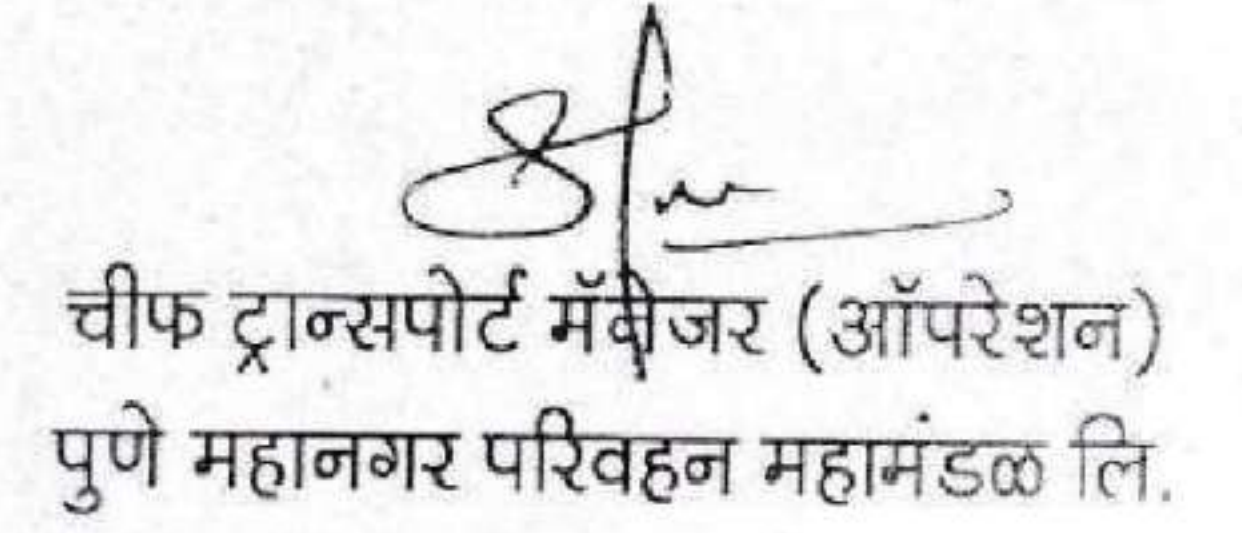 चीफ ट्रान्सपोर्ट मॅनेजर (ऑपरेशन)
पुणे महानगर परिवहन महामंडळ लि.